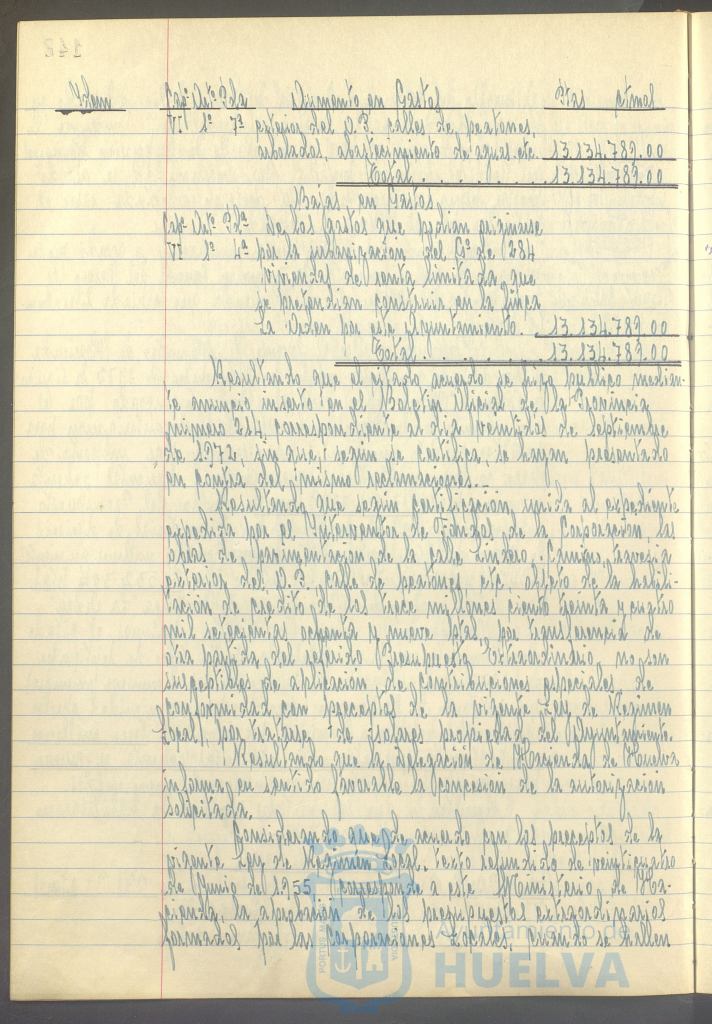 Idem Cap.º Art.º Pda Aumento en Gastos Ptas ctmos
VI 1º 7ª exterior del P. P. calles de peatones,
arbolados, abastecimiento de aguas etc. 13.134.789.00
Total . . . . . . . . 13.134.789.00
Bajas en Gastos
Cap.º Art.º Pda De los Gastos que podian originarse
VI 1º 4ª por la urbanización del Gº de 284
viviendas de renta limitada que
se pretendian construir en la finca
La Orden por este Ayuntamiento. 13.134.789.00
Total . . . . . . . . 13.134.789.00
Resultando que el citado acuerdo se hizo publico median-
te anuncio inserto en el Boletin Oficial de la Provincia
numero 214 correspondiente al dia veintidos de Septiembre
de 1972, sin que, según se certifica, se hayan presentado
en contra del mismo reclamaciones.-
Resultando que según certificación unida al expediente
expedida por el Interventor de Fondos de la Corporación las
obras de pavimentación de la calle Lindero, Camino, travesia
exterior del P. P. calle de peatones etc, objeto de la habili-
tación de credito de los trece millones ciento treinta y cuatro
mil setecientas ochenta y nueve ptas, por transferencia de
otra partida del referido Presupuesto Extraordinario, no son
susceptibles de aplicación de contribuciones especiales de
conformidad con preceptos de la vigente Ley de Regimen
Local, por tratarse de solares propiedad del Ayuntamiento.
Resultando que la Delegación de Hacienda de Huelva
informa en sentido favorable la concesion de la autorización
solicitada.
Considerando que de acuerdo con los preceptos de la
vigente Ley de Regimen Local, texto refundido de veinticuatro
de Junio de 1.955 corresponde a este Ministerio de Ha-
cienda, la aprobación de los presupuestos extraordinarios
formados por las Corporaciones Locales, cuando se hallen
Ayuntamiento de
HUELVA